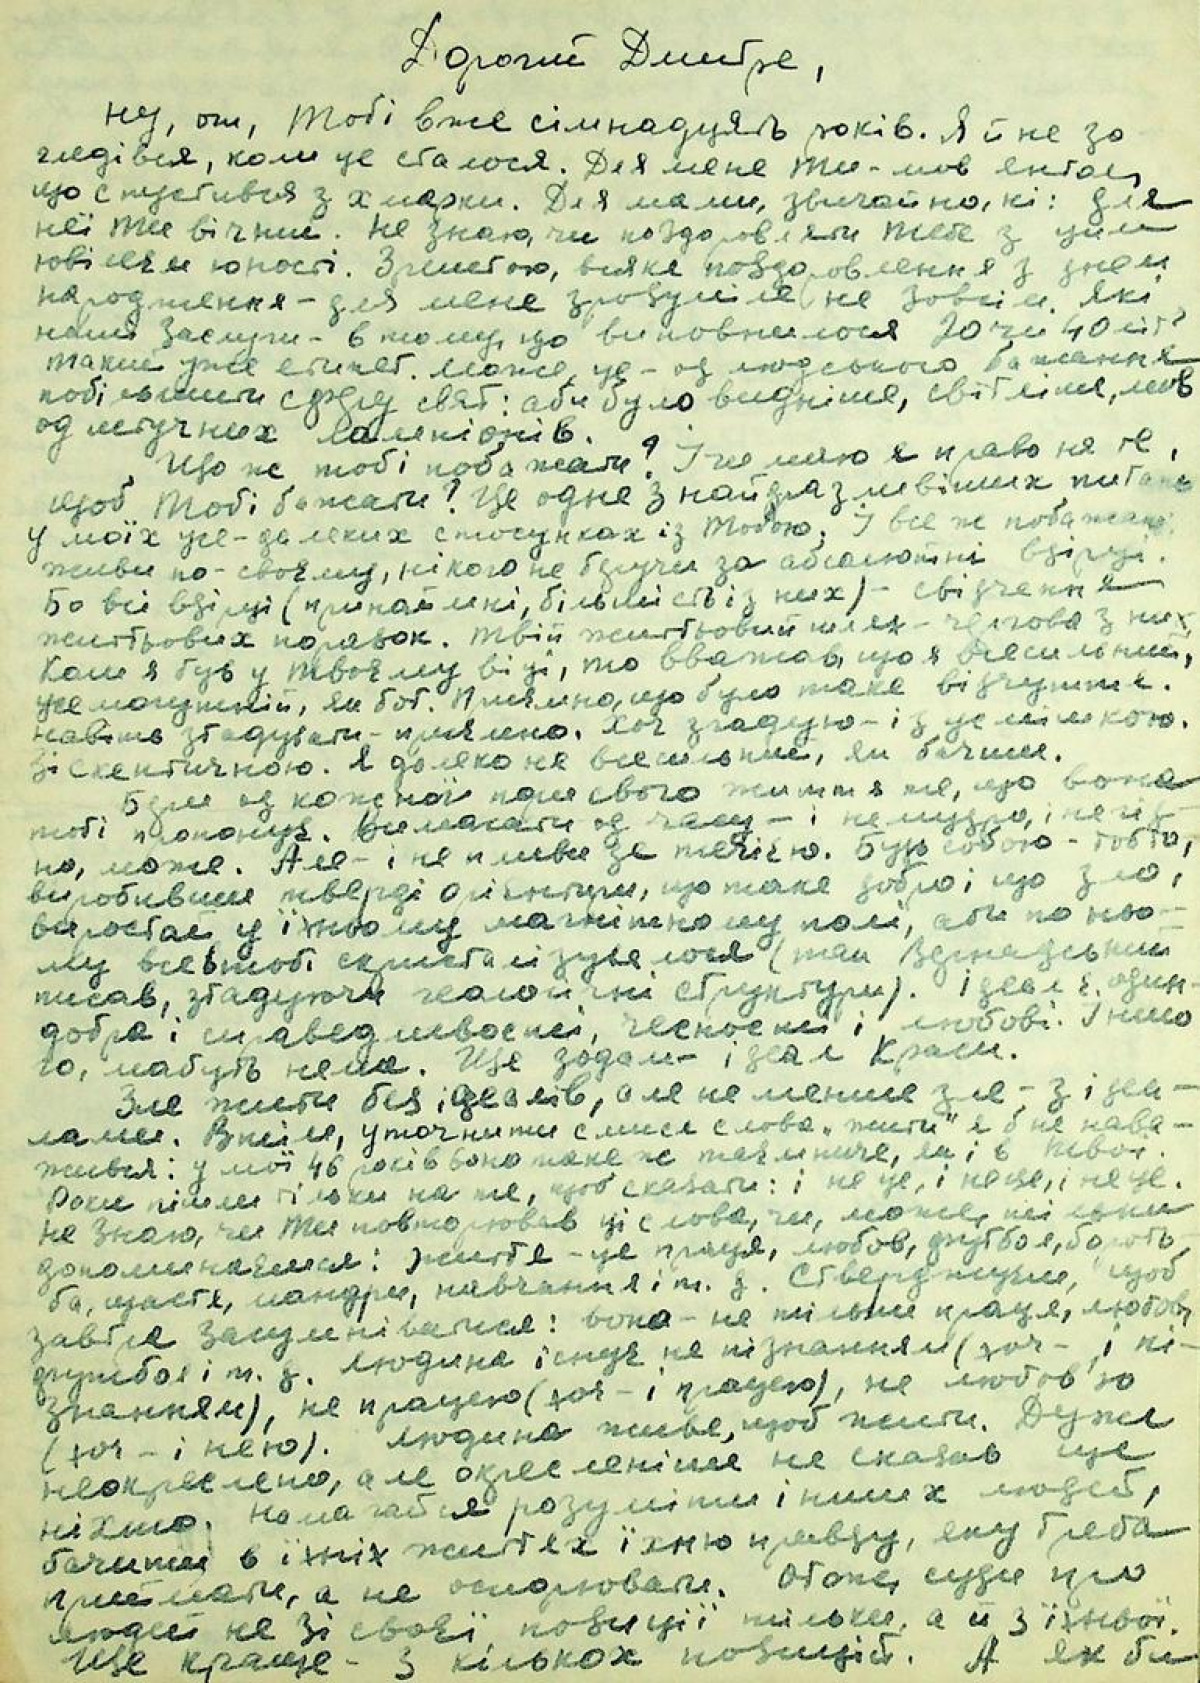 Дорогий Дмитре,
Ну, от, Тобі вже сімнадцять років. Я й не зо
гледівся, коли це сталося. Для мене Ти - мов янгол,
що спустився з хмарки. Для мами, звичайно, ні: для
неї Ти вічний. Не знаю, чи поздоровляти Тебе з цим
ювілеєм юності. Зрештою, всяке поздоровлення з днем
народження - для мене зрозуміле не зовсім. Які
наші заслуги - в тому, що виповнилося 20 чи 40 літ?
Такий уже етикет. Може, це - од людського бажання
побільшити сферу свят: аби було видніше, світліше, мов
од штучних лампіонів.
Що ж тобі побажати? І чи маю я право на те,
щоб Тобі бажати? Це одне з найвразливіших питань
у моїх уже-далеких стосунках із Тобою. І все ж побажаю:
живи по-своєму, нікого не беручи за абсолютні взірці.
Бо всі взірці (принаймні, більшість із них) - свідчення
життьових поразок. Твій життьовий шлях - чергова з них.
Коли я був у твоєму віці, то вважав, що я всесильний,
усемогутній, як бог. Приємно, що було таке відчуття.
Навіть згадувати - приємно. Хоч згадую - із усмішкою.
Зі скептичною. Я далеко не всесильний, як бачиш.
Бери од кожної пори свого життя те, що вона
тобі пропонує. Вимагати од часу - і немудро, і негід-
но, може. Але - і не пливи за течією. Будь собою - тобто,
виробивши тверді орієнтири, що таке добро і що зло,
виростай у їхньому магнітному полі, аби по ньо-
му все в тобі скристалізувалося (так Вернадський
писав, згадуючи геологічні структури). Ідеал є один -
добра і справедливості, чесності і любові. Іншо
го, мабуть нема. Ще додам - ідеал Краси.
Зле жити без ідеалів, але не менше зле - з ідеа-
лами. Втім, уточнити смисл слова „жити" я б не нава-
жився: у мої 46 років воно таке ж таємниче, як і в твої.
Роки пішли тільки на те, щоб сказати: і не це, і не це, і не це.
Не знаю, чи Ти повторював ці слова, чи, може, тільки
допоминаєшся: життя - це праця, любов, дружба, бороть-
ба, щастя, мандри, навчання і т. д. Стверджуєш, щоб
завтра засумніватися: вона - не тільки праця, любов,
дружба і т. д. Людина існує не пізнанням (хоч - і пі-
знанням), не працею (хоч - і працею), не любов'ю
(хоч - і нею). Людина живе, щоб жити. Дуже
неокреслено, але окресленіше не сказав ще
ніхто. Намагайся розуміти інших людей,
бачити в їхніх життях їхню правду, яку треба
приймати, а не оспорювати. Отже, суди про
людей не зі своєї позиції тільки, а й з їхньої.
Ще краще - з кількох позицій. А як би